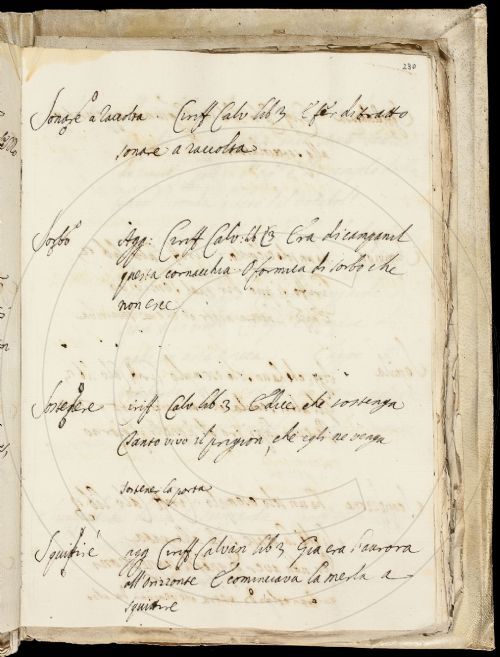 230
Sonare a raccolta. Ciriff Calv lib 3 E fer di tratto
sonare a raccolta
Sorbo Agg: Ciriff Calv: lib 3 Era di campanil
questa cornacchia O formica di sorbo che
non esc
Sostenere iriff Calv lib 3 E dice, che sostenga
Tanto vivo il prigion, che egli ne venga
sostener la porta
Squittire agg Ciriff Calvan lib 3 Gia era l'aurora
all'orizzonte E cominciava la merla a
squittire